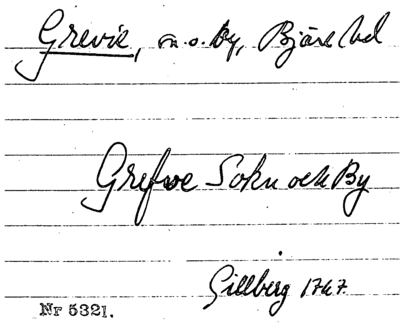 Grevie, sn. o. by, Bjäre hd
Grefwe Sokn och By
Gillberg 1767
Nr 5321.